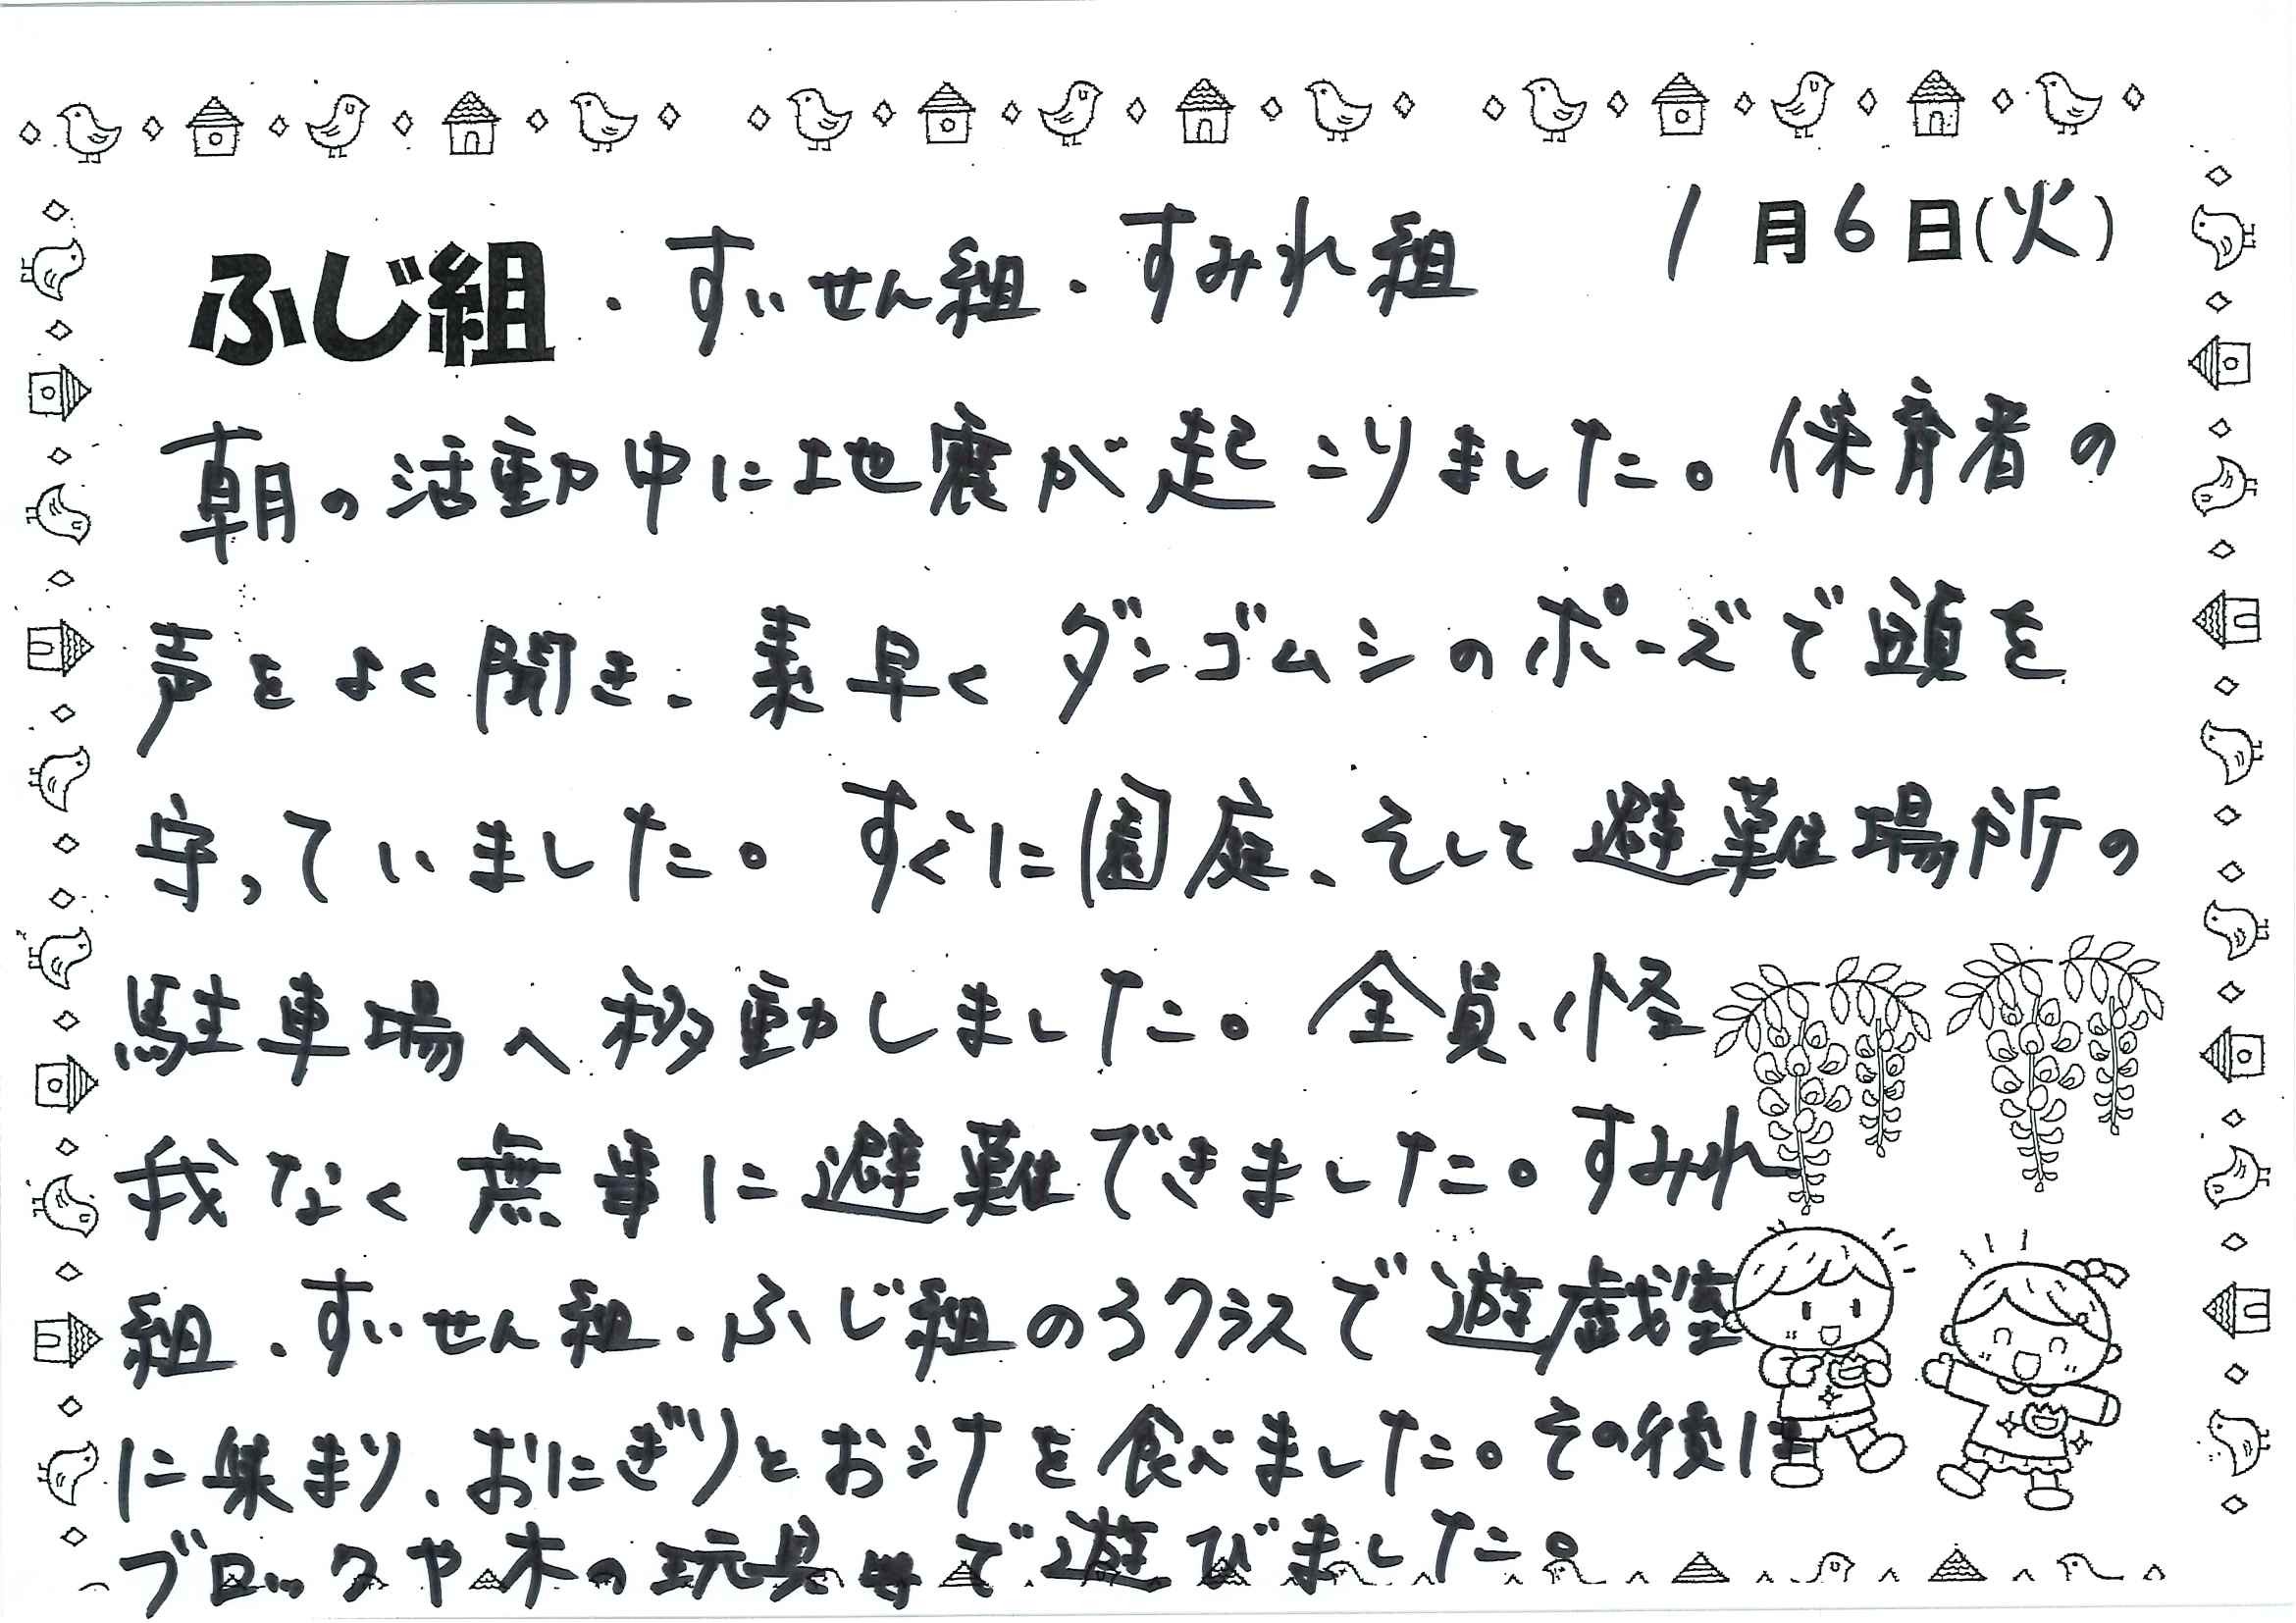 1月6日(火)
ふじ組・すいせん組・すみれ組
朝の活動中に地震が起こりました。保育者の
声をよく聞き、素早くダンゴムシのポーズで頭を
守っていました。すぐに園庭、そして避難場所の
駐車場へ移動しました。全員、怪
我なく無事に避難できました。すみれ
組・すいせん組・ふじ組の3クラスで遊戯室
に集まり、おにぎりとおシナを食べました。その後は
ブロックや木の玩具等で遊びました。